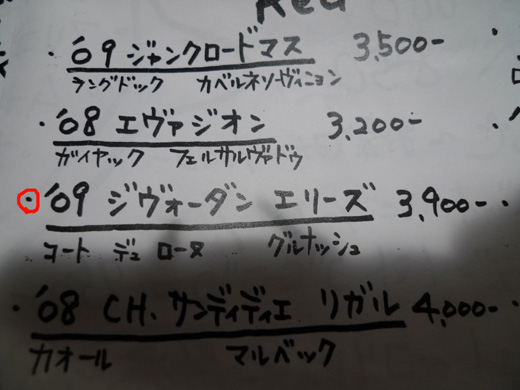 Red
・'09 ジャンクロードマス 3,500-
ラングドック カベルネソーヴィニョン
・'08 エヴァジオン 3,200-
ガイヤック フェルサルヴァドゥ
・'09 ジヴォーダン エリーズ 3,900-
コート デュ ローヌ グルナッシュ
・'08 CH、サンディディエ リガル 4,000-
カオール マルベック